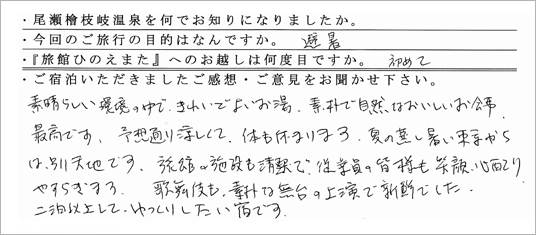 ・尾瀬檜枝岐温泉を何でお知りになりましたか。
・今回のご旅行の目的はなんですか。 避暑
・『旅館ひのえまた』へのお越しは何度目ですか。 初めて
・ご宿泊いただきましたご感想・ご意見をお聞かせ下さい。
素晴らしい環境の中で、きれいでよいお湯、素朴で自然なおいしいお食事
最高です、予想通り涼しくて、体も休まります、夏の蒸し暑い東京から
は、別天地です。旅館の施設も清潔で、従業員の皆様も笑顔、心配り
やすらぎます、歌舞伎も、素朴な舞台の上演で新鮮でした。
二泊以上して、ゆっくりしたい宿です。